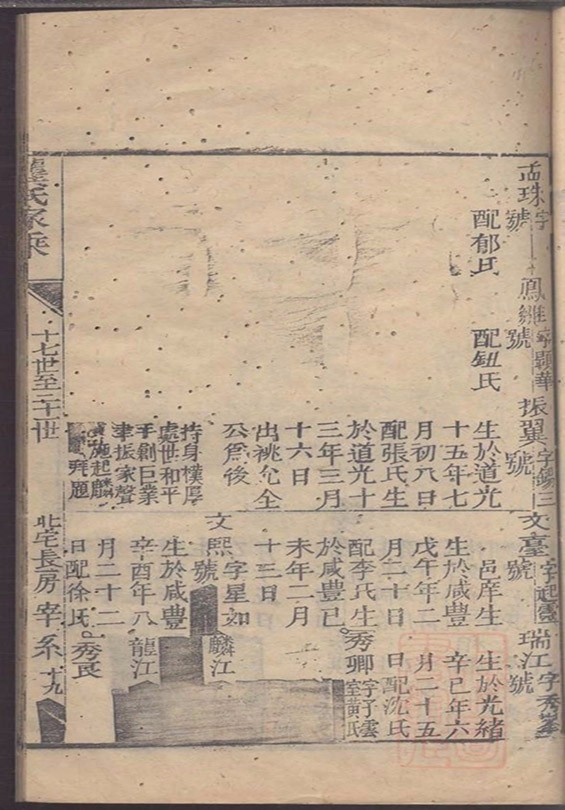 孟珠字
號
配郁氏
鳳雛字顯華
號
配鈕氏
振翼字錦三
號
生於道光
十五年七
月初八日
配張氏生
於道光十
三年三月
十六日
出祧允全
公為後
持身樸厚
處世和平
手創巨業
津振家聲
施起麟
拜題
文臺字起靈
號
邑庠生
生於咸豐
戊午年二
月二十日
配李氏生
於咸豐己
未年二月
十三日
文熙字星如
號
生於咸豐
辛酉年八
月二十二
日配徐氏
瑞江字秀峯
號
生於光緒
辛巳年六
月二十五
日配沈氏
秀卿字子雲
室黃氏
麟江
龍江
秀辰
龔氏家乘
十七世至二十一世
北宅長房宰系
十九